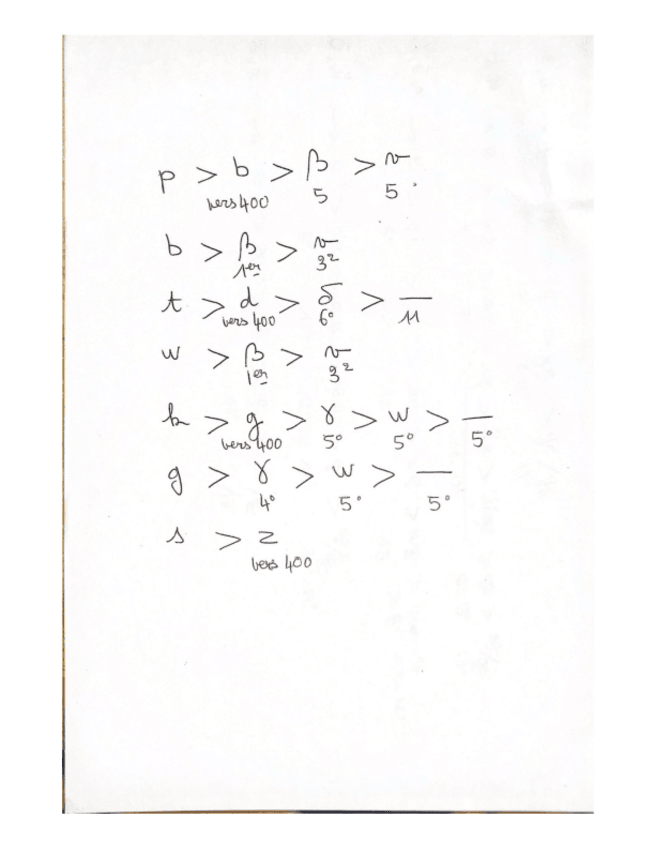 p > b > β > v
vers 400 5 5.
b > β > v
1er 3e
t > d > δ > —
vers 400 6° 11
w > β > v
1er 3e
k > g > γ > w > —
vers 400 5° 5° 5°
g > γ > w > —
4° 5° 5°
s > z
vers 400